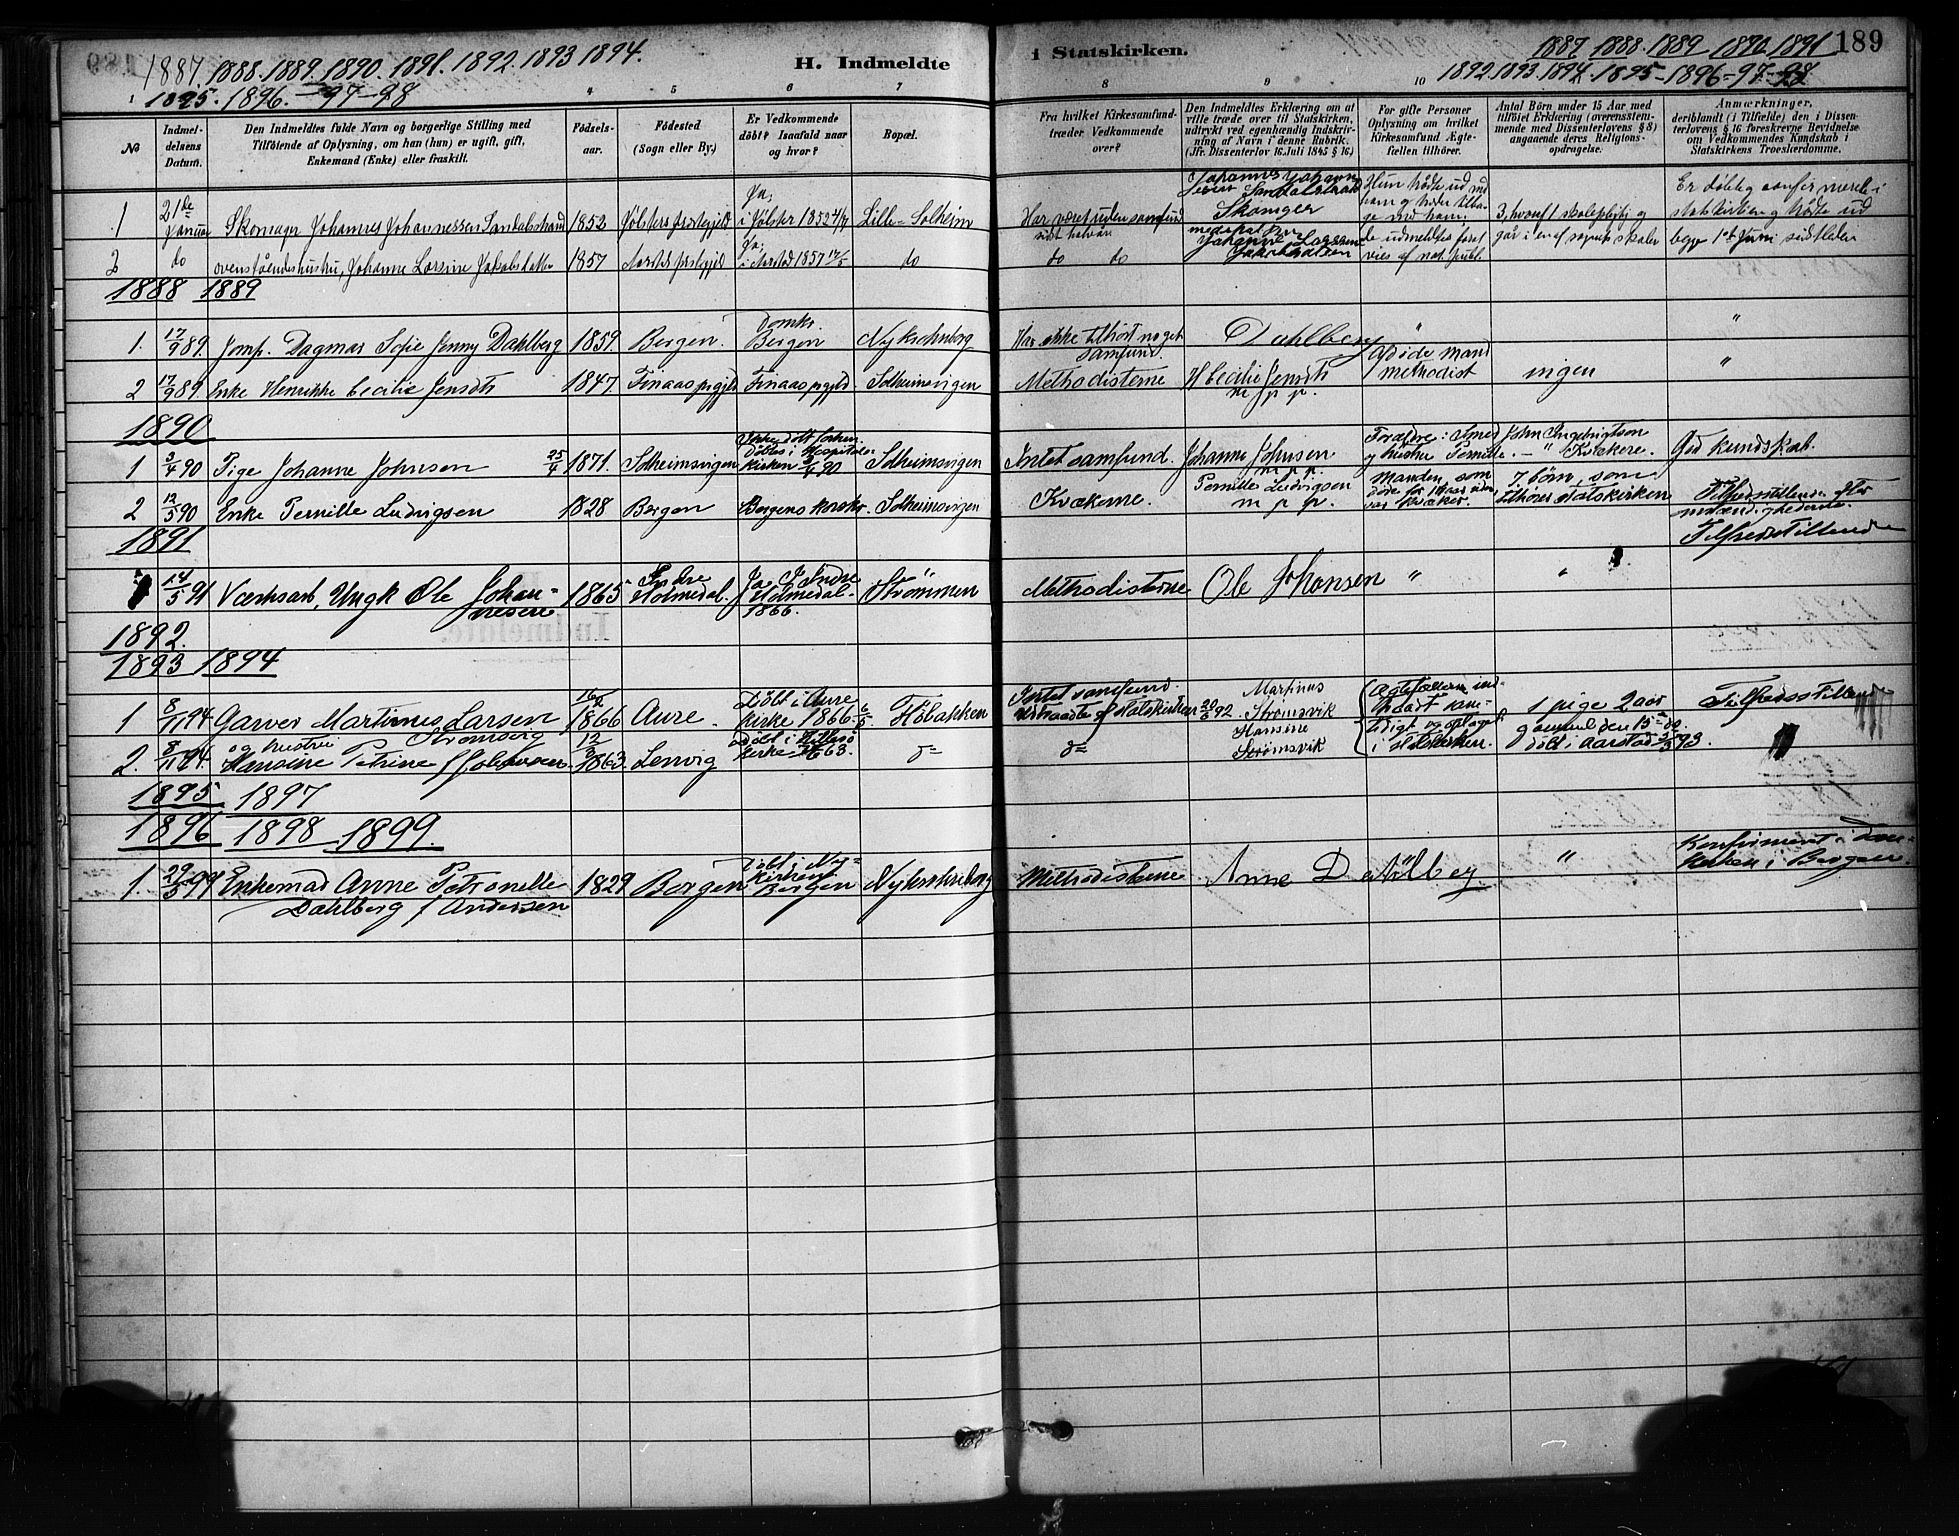 1887. 1888. 1889. 1890. 1891. 1892. 1893 1894.
1895. 1896. 97-98
H. Indmeldte
i Statskirken.
1887 1888 1889 1890 1891
1892 1893 1894 1895-1896-97-98
189
1 4 5 6 7 8 9 10
No
Indmeldelsens Datum.
Den Indmeldtes fulde Navn og borgerlige Stilling med Tilföiende af Oplysning, om han (hun) er ugift, gift, Enkemand (Enke) eller fraskilt.
Födselsaar.
Födested (Sogn eller By.)
Er Vedkommende döbt? Isaafald naar og hvor?
Bopæl.
Fra hvilket Kirkesamfund træder Vedkommende over?
Den Indmeldtes Erklæring om at ville træde over til Statskirken, udtrykt ved egenhændig Indskrivning af Navn i denne Rubrik. (Jfr. Dissenterlov 16. Juli 1845 § 16.)
For gifte Personer Oplysning om hvilket Kirkesamfund Ægtefællen tilhörer.
Antal Börn under 15 Aar med tilföiet Erklæring (overensstemmende med Dissenterlovens § 8) angaaende deres Religionsopdragelse.
Anmærkninger, deriblandt (i Tilfælde) den i Dissenterlovens § 16 foreskrevne Bevidnelse om Vedkommendes Kundskab i Statskirkens Troeslærdomme.
1 21de Januar Skomager Johannes Johannessen Sandalstrand 1852 Jølster præstegjeld Ja, i Jølster 1852 Lille-Solheim Har været uden samfund sidst halvår
Skomager
Hun trådte ud med ham og træder tilbage med ham
Er døbt og konfirmeret i statskirken og trådte ud
2 do ovenståendes hustru, Johanne Larsine Jakobsdatter 1857 Ja, i Aarstad 1857 do do do
1888 1889
1. 17/9 89. Jomf. Dagmar Sofie Jenny Dahlberg 1859. Bergen. Domk. Bergen Nykrohnborg Har ikke tilhört noget Samfund. Dahlberg " "
2 17/9 89. Enke Henrikke Cecilie Jensdts 1847. Finaas prgjeld Finaas prgjeld. Solheimsvigen Methodisterne H Cecilie Jensdts m p p Afdøde mand methodist ingen "
1890
1 3/4 90 Pige Johanne Johnsen 25/4 1871. Solheimsvigen Døbtes i Hospitalskirken 3/4 90 Solheimsvigen Intet samfund. Johanne Johnsen m.p.p. Forældre: Smed John Ingebrigtson og hustru Pernille. - " Kvækere. God kundskab.
2 12/5 90 Enke Pernille Ludvigsen 1828 Bergen Bergens korskr. Solheimsvigen Kvækerne. Pernille Ludvigsen m p p. Manden som døde for 1 Aar siden var kvæker. 7 børn, som tilhører statskirken Tilfredsstillende efter omstændighederne.
1891
Tilfredsstillende
14/5 91 Værksarb, Ungk Ole Johannesen 1865 Indre Holmedal. Ja. I Indre Holmedal. 1866. Strømmen Methodisterne Ole Johansen " "
1892.
1893 1894
1 8/11 94 Garver Martinus Larsen Strømsvig 1866 Aure. Döbt i Aure kirke 1866. Intet samfund. udtraadte af Statskirken 20/5 92 Martinus Strømsvik 1 pige 2 aar gammel den 15de do. döbt i Aarstad 93. Tilfredsstillende
2. 8/11 94 og hustru Hansine Petrine f Johnsen 12/3 1863. Lenvig Döbt i Hillesö kirke 63. do do Hansine Strømsvik i statskirken.
1895 1897
1896 1898 1899.
1. 29/5 99 Enkemad Anne Petronelle Dahlberg f Andersen 1829 Bergen Döbt i Nykirken Bergen Nykrohnborg Methodisterne Anne Dahlberg " Konfirmeret i Domkirken i Bergen.